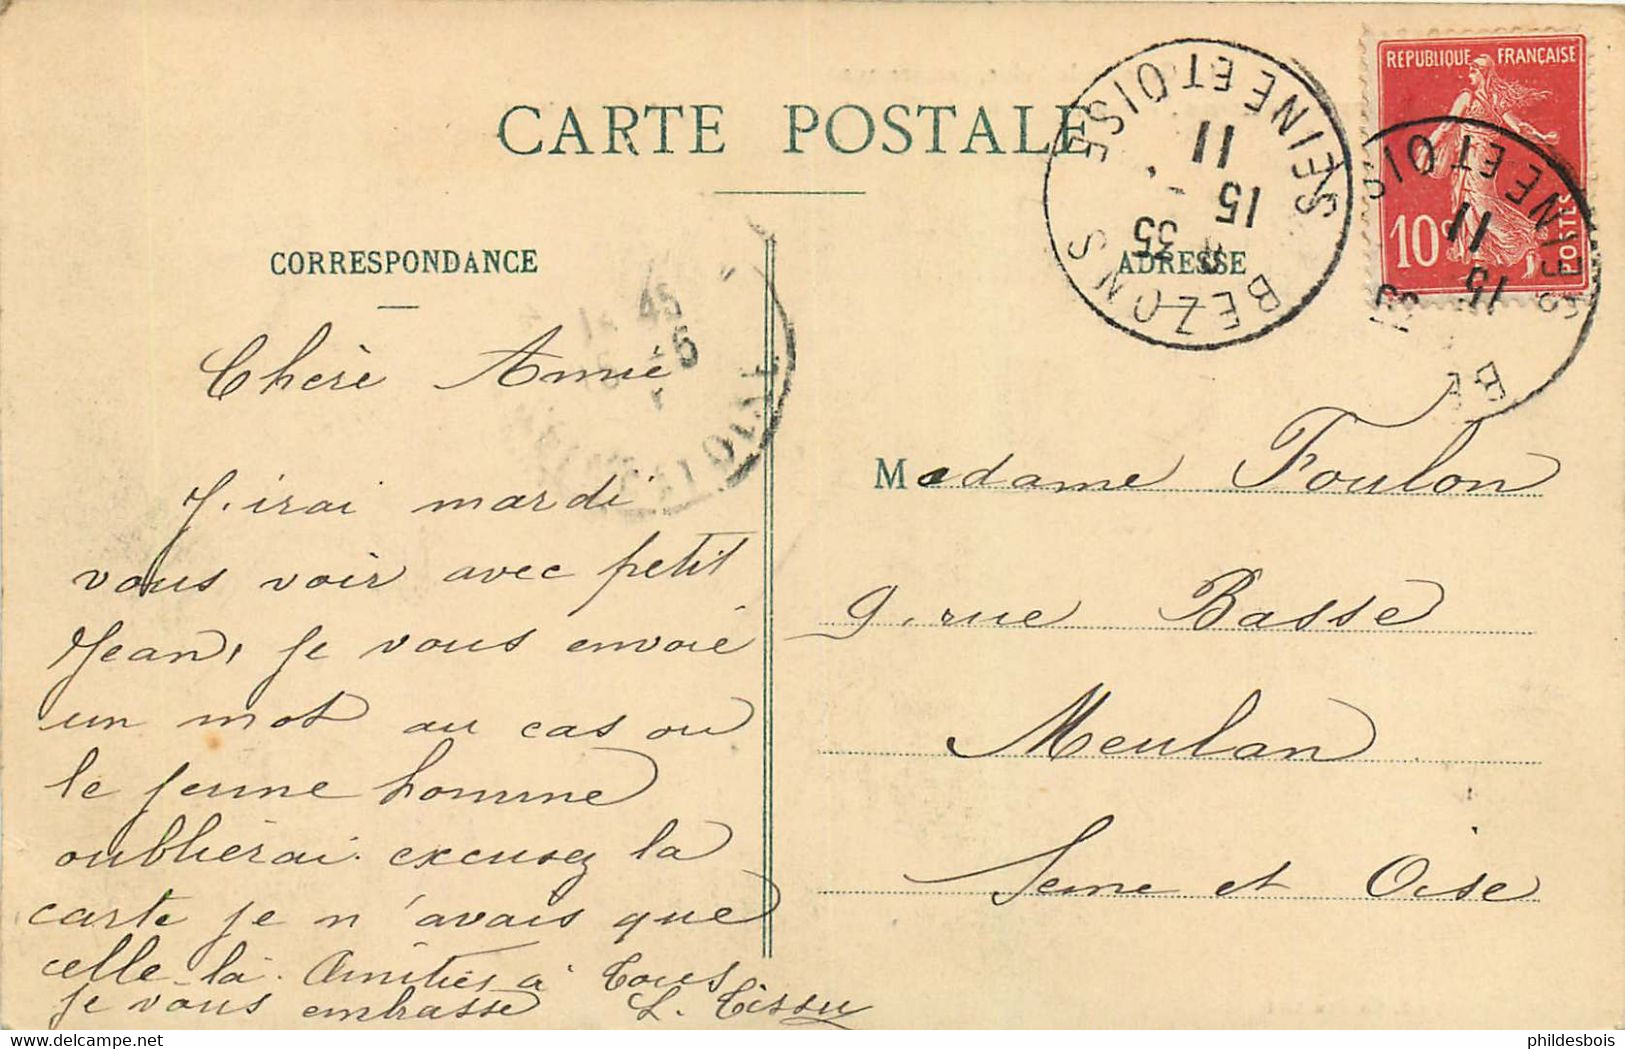 CARTE POSTALE
CORRESPONDANCE
ADRESSE
REPUBLIQUE FRANÇAISE
10c
POSTES
BEZONS
SEINE ET OISE
15 35
15
11
SEINE ET OIS
11
15
B
45
6
Chère Amie
J'irai mardi
vous voir avec petit
Jean, je vous envoie
un mot au cas ou
le jeune homme
oublierai. excusez la
carte je n'avais que
celle-là. Amitiés à tous
je vous embrasse L. Tissu
Madame Foulon
9. rue Basse
Meulan
Seine et Oise
www.delcampe.net
phildesbois